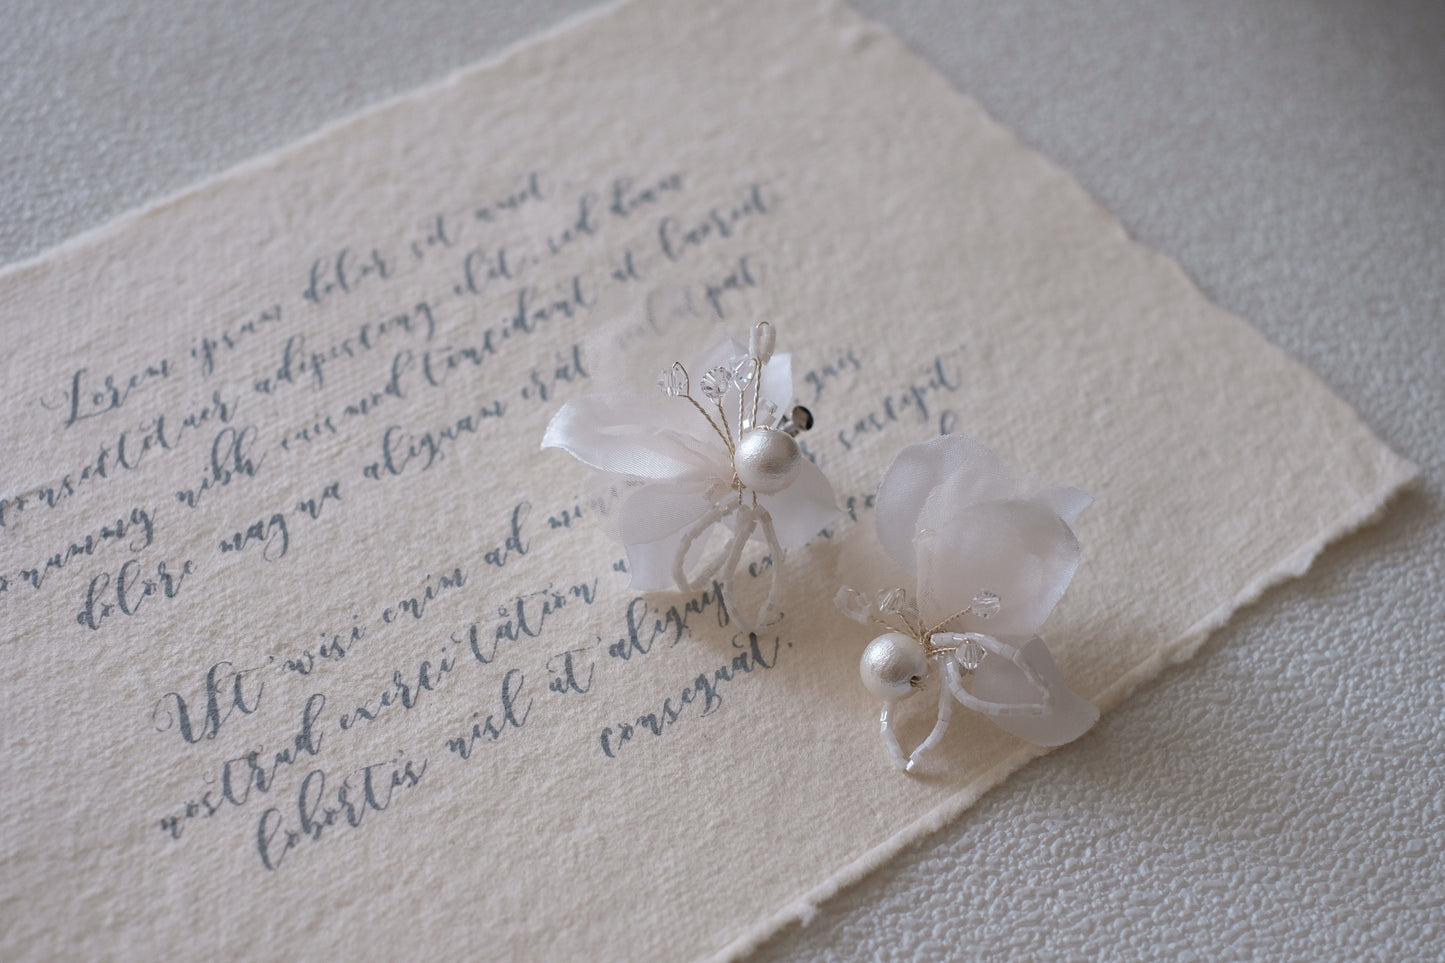 Lorem ipsum dolor sit amet,
consectetuer adipiscing elit, sed diam
onummy nibh euismod tincidunt ut laoreet
dolore magna aliquam erat
Ut wisi enim ad quis
nostrud exerci tation suscipit
lobortis nisl ut aliquip ex
consequat.